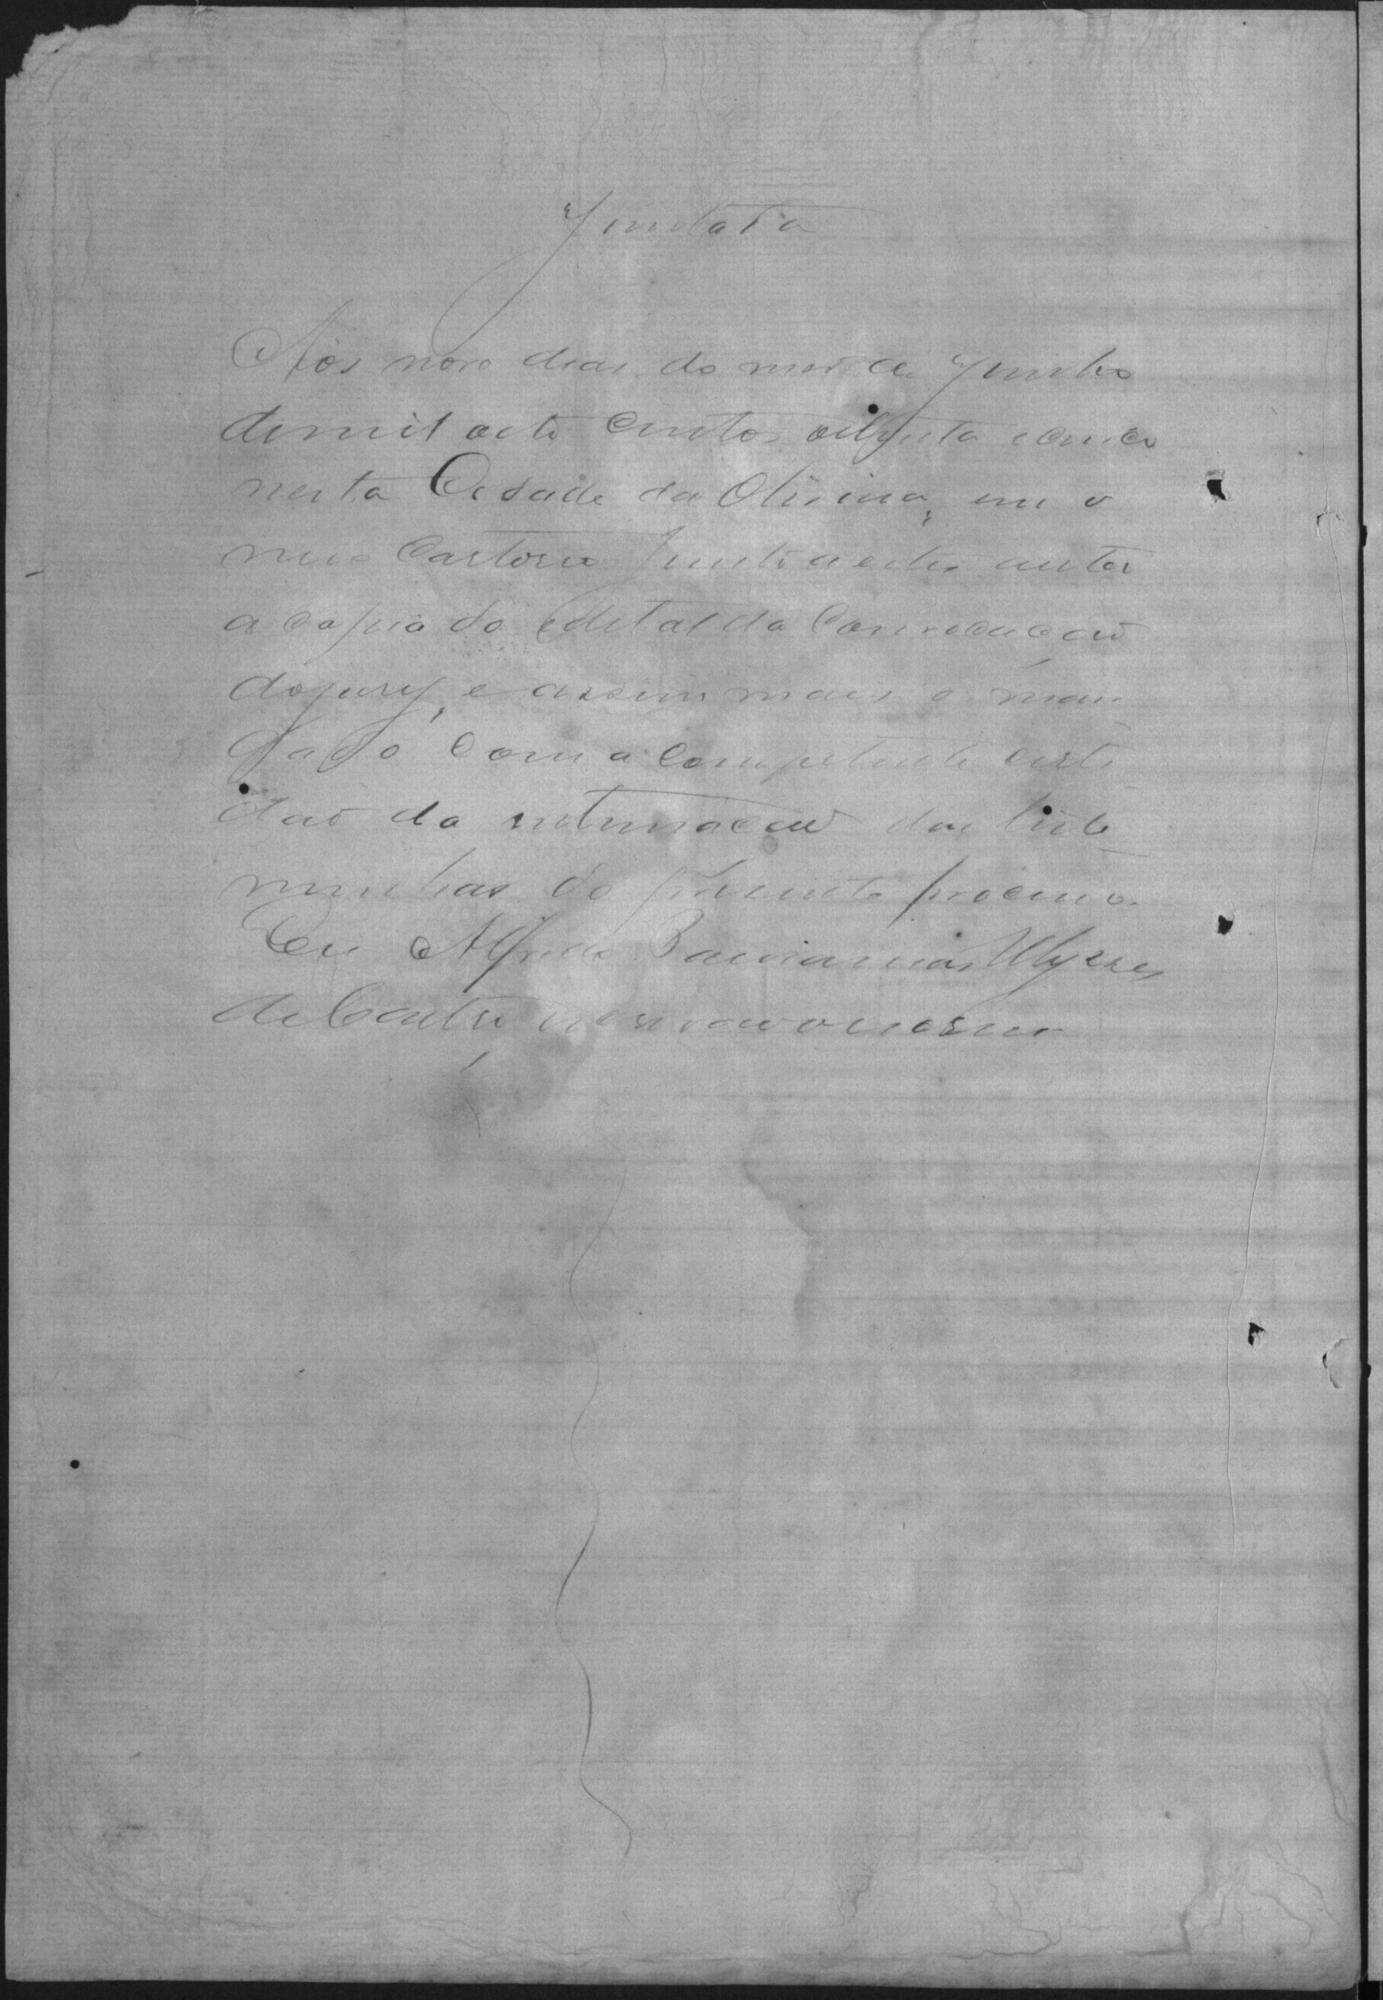 Juntada
Aos nove dias do mes de Junho
de mil oito centos oitenta e cinco
nesta Cidade da Oliveira, em o
meu Cartorio junto a estes autos
a copia do edital da Convocação
do jury, e assim mais o man
dado com a competente certi
dão da intimação das teste
munhas do presente processo.
Eu Alfredo Ulysses
de Castro escrivão o escrevi